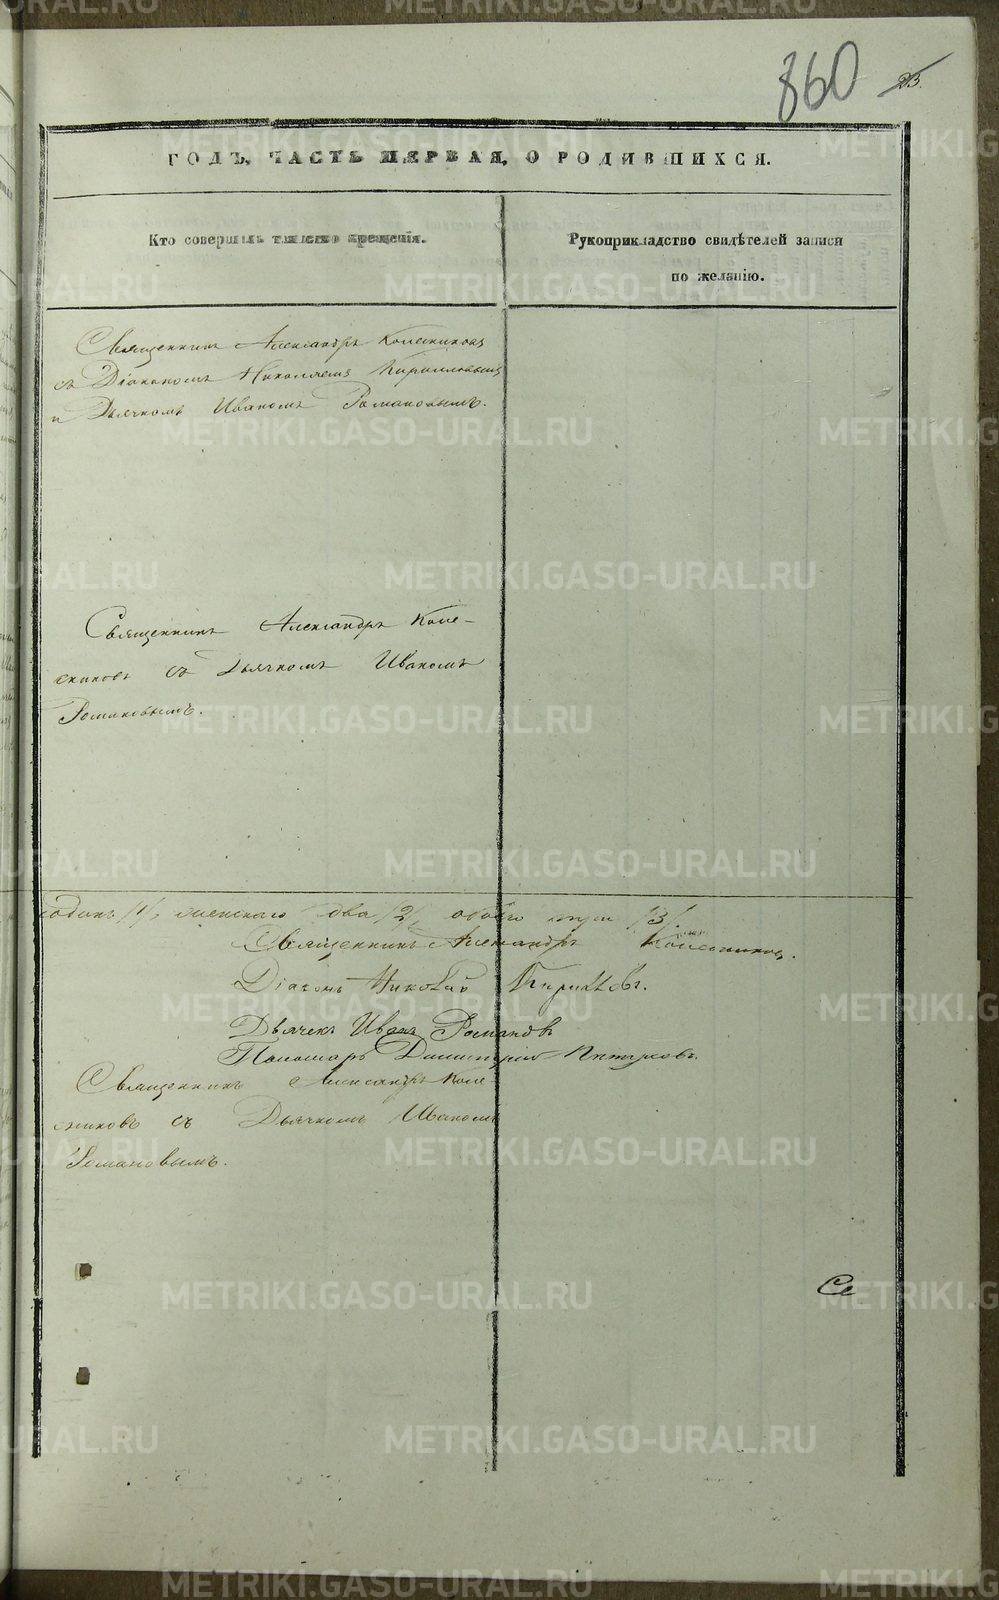 860 23.
ГОДЪ, ЧАСТЬ ПЕРВАЯ, О РОДИВШИХСЯ.
Кто совершалъ таинство крещенія.
Рукоприкладство свидѣтелей записи
по желанію.
Священникъ Александръ Колесниковъ
съ Діакономъ Николаемъ Кирилловымъ
и Дьячкомъ Иваномъ Романовымъ.
Священникъ Александръ Коле-
сниковъ съ Дьячкомъ Иваномъ
Романовымъ.
одинъ /1/, женскаго два /2/, обоего три /3/.
Священникъ Александръ Колесниковъ.
Діаконъ Николай Кириловъ.
Дьячекъ Иванъ Романовъ
Пономарь Димитрій
Священникъ Александръ Коле-
сниковъ съ Дьячкомъ Иваномъ
Романовымъ.
Се
METRIKI.GASO-URAL.RU